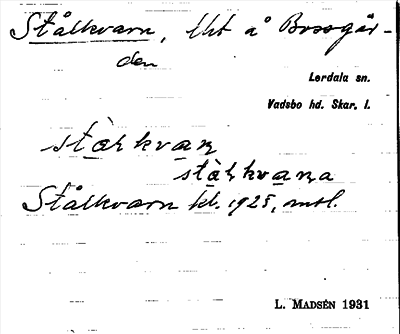 Stålkvarn, lht å Bossgår-
den
Lerdala sn.
Vadsbo hd. Skar. l.
stålkvaṇ
stålkvaṇa
Stålkvarn hl. 1925, mtl.
L. MADSÉN 1931